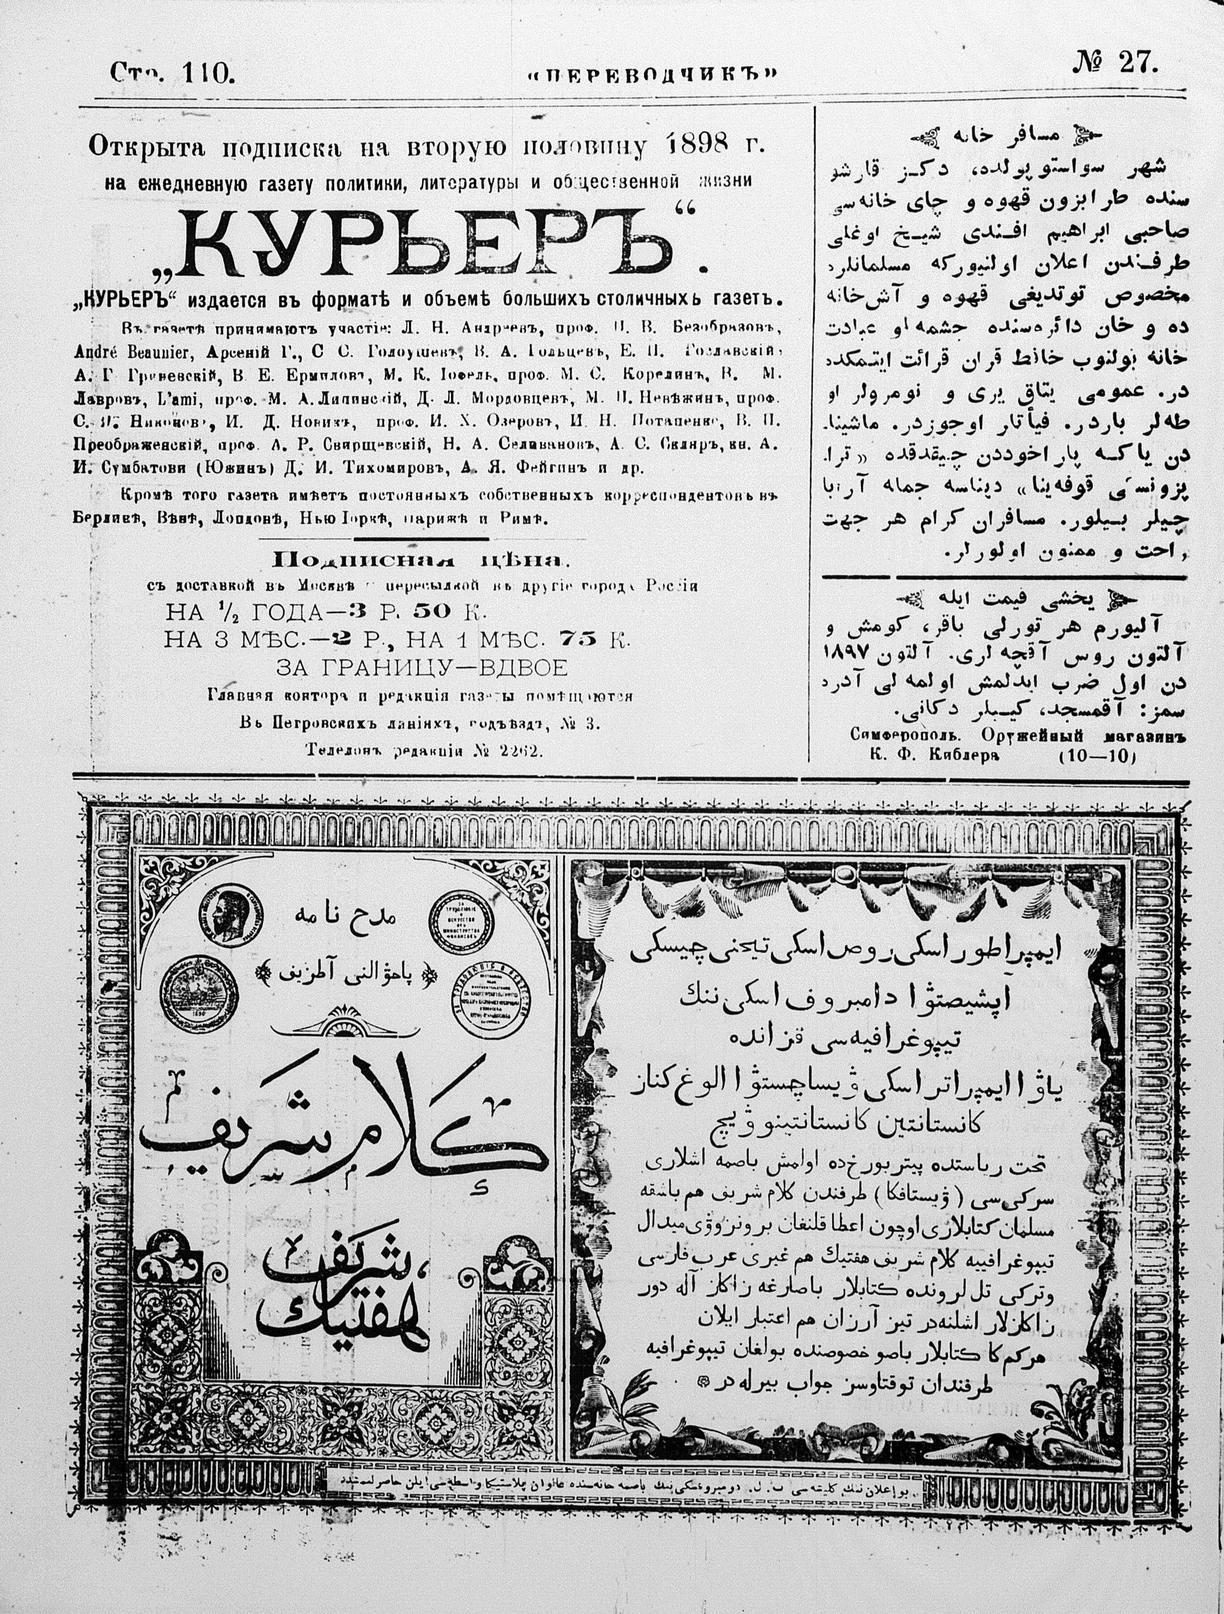 Стр. 110.
«ПЕРЕВОДЧИКЪ»
№ 27.
Открыта подписка на вторую половину 1898 г.
на ежедневную газету политики, литературы и общественной жизни
„КУРЬЕРЪ“.
„КУРЬЕРЪ“ издается въ форматѣ и объемѣ большихъ столичныхъ газетъ.
Въ газетѣ принимаютъ участіе: Л. Н. Андреевъ, проф. П. В. Безобразовъ,
André Beaunier, Арсеній Г., С. С. Голоушевъ, В. А. Гольцевъ, Е. П. Гославскій,
А. Г. Греневскій, В. Е. Ермиловъ, М. К. Іофель, проф. М. С. Корелинъ, В. М.
Лавровъ, L'ami, проф. М. А. Липинскій, Д. Л. Мордовцевъ, М. П. Невѣжинъ, проф.
И. Д. Новикъ, проф. И. Х. Озеровъ, И. Н. Потапенко, В. П.
Преображенскій, проф. А. Р. Свирщевскій, Н. А. Селивановъ, А. С. Скляръ, кн. А.
И. Сумбатовъ (Южинъ) Д. И. Тихомировъ, А. Я. Фейгинъ и др.
Кромѣ того газета имѣетъ постоянныхъ собственныхъ корреспондентовъ въ
Берлинѣ, Вѣнѣ, Лондонѣ, Нью Іоркѣ, Парижѣ и Римѣ.
Подписная цѣна.
съ доставкой въ Москвѣ и пересылкой въ другіе города Россіи
НА ½ ГОДА—3 Р. 50 К.
НА 3 МѢС.—2 Р., НА 1 МѢС. 75 К.
ЗА ГРАНИЦУ—ВДВОЕ
Главная контора и редакція газеты помѣщаются
Въ Петровскихъ линіяхъ, подъѣздъ, № 3.
Телефонъ редакціи № 2262.
مسافر خانه
شهر سواستوپولده، دكز قارشو
سنده طرابزون قهوه و چای خانه سی
صاحبی ابراهیم افندی شیخ اوغلی
طرفندن اعلان اولنیورکه مسلمانلره
مخصوص توتدیغی قهوه و آش خانه
ده و خان دائره سنده جشمه او عبادت
خانه بولنوب حافظ قران قرائت ایتمکده
در. عمومی یتاق یری و نومرولر او
طه لر باردر. فیأتلر اوجوزدر. ماشینا
دن یاکه پاراخوددن چیقدقده «ترا
پزونسکی قوفه ینا» دیناسه جمله آرابا
چیلر بیلور. مسافران کرام هر جهت
راحت و ممنون اولورلر.
یخشی قیمت ایله
آلیورم هر تورلی باقر، کومش و
آلتون روس آقچه لری. آلتون ١٨٩٧
دن اول ضرب ایدلمش اولمه لی آدره
سمز: آقمسجد، کیبلر دکانی.
Симферополь. Оружейный магазинъ
К. Ф. Киблера (10—10)
مدح نامه
پاهوالنی آطزیف
كلام شریف
هفتیك شریف
ایمپراطور اسکی روص اسکی تیخنی چیسکی
آپشیصتوا دامبروف اسکی ننك
تیپوغرافیه سی قزانده
یاوا ایمپراتر اسکی ویساچستوا الوغ کناز
کانستانتین کانستانتینوویچ
تحت ریاستده پیتربورخ ده اولمش باصمه اشلاری
سرکی سی (ویستافکا) طرفندن کلام شریف هم باشقه
مسلمان کتابلاری اوچون اعطا قلنغان برونزوی میدال
تیپوغرافییه کلام شریف هفتیك هم غیری عرب فارسی
وترکی تل لرونده کتابلار باصارغه زاکاز آله دور
زاکازلار اشلنه در تیز آرزان هم اعتبار ایلان
هرکم کا کتابلار باصو خصوصنده بولغان تیپوغرافیه
طرفندان توقتاوسز جواب بیرله در